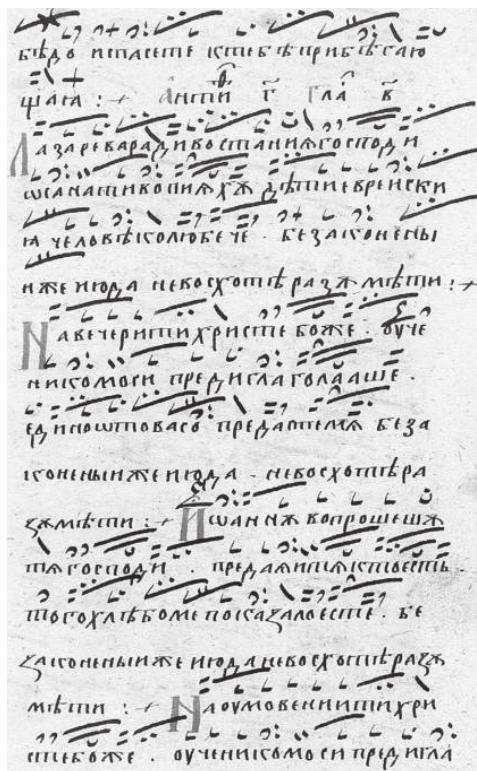 бѣдо испасете ктебѣ прибѣгаю
щаıа : Анти г҃ Гла в҃
Лазаревa ради востания господи
ѡсанати вопияхѫ дѣти евреиски
ıа человѣколюбече . безаконены
иже июда невосхотѣ разѫмѣти :
На вечери ти христе боже . ѹче
никомоси предиглаголааше .
единоѿвасо предастемѧ беза
конены иже июда . невосхотѣ ра
зѫмѣти : Иѡаннѫ вопрошешѫ
тѧ господи . предаяи тѧ кто есть .
того хлѣбоме показало есте . бе
законены иже июда невосхотѣ разѫ
мѣти : На оумовении ти хри
сте боже . оученикомоси предигла